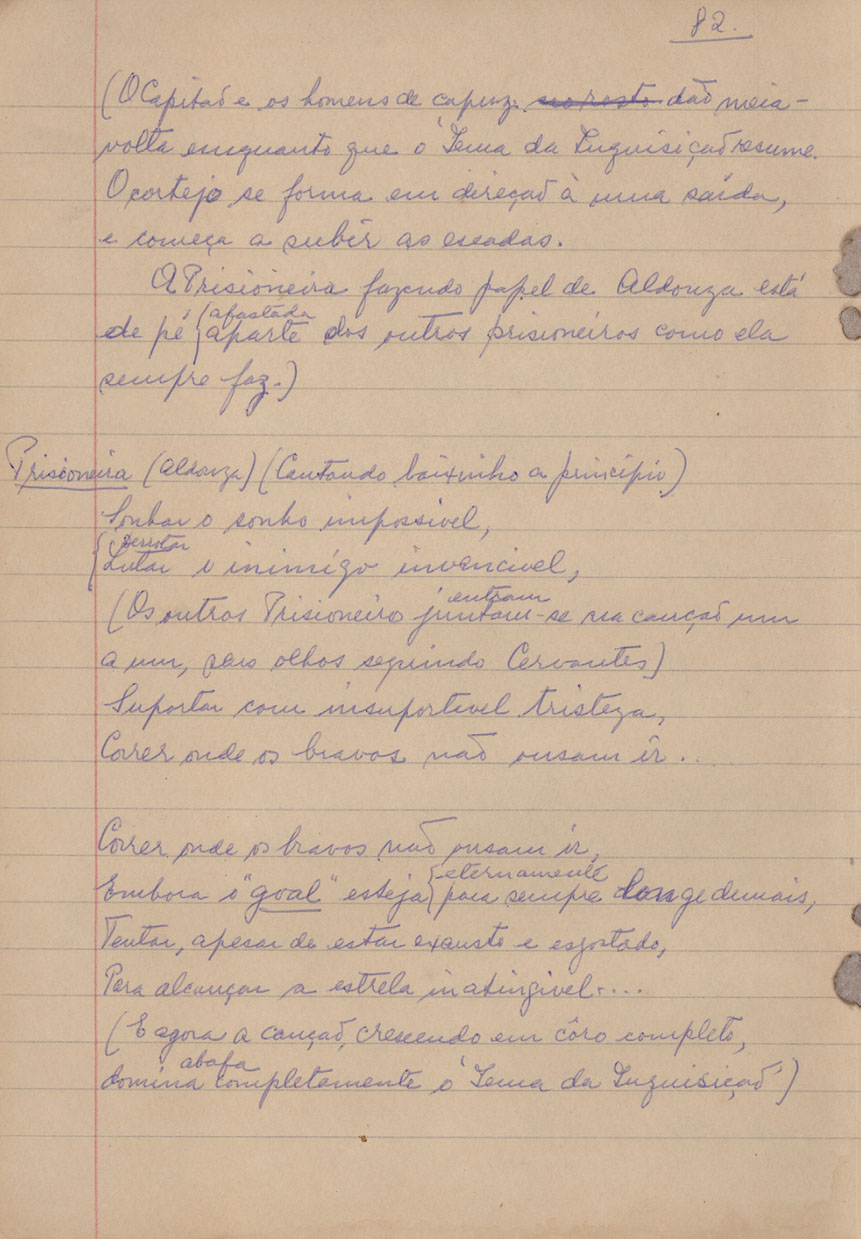 82.
(O Capitão e os homens de capuz. no resto dão meia-
volta emquanto que o 'Tema da Inquisição' resume.
O cortejo se forma em direção à uma saída,
e começa a subir as escadas.
A Prisioneira fazendo papel de Aldonza está
afastada
de pé { aparte dos outros prisioneiros como ela
sempre faz.)
Prisioneira (Aldonza) (Cantando baixinho a princípio)
Sonhar o sonho impossivel,
Derrotar
{ Lutar o inimigo invencivel,
entram
(Os outros Prisioneiro juntam-se na canção um
a um, seus olhos seguindo Cervantes)
Suportar com insuportivel tristeza,
Correr onde os bravos não ousam ir...
Correr onde os bravos não ousam ir,
eternamente
Embora o "goal" esteja { para sempre longe demais,
Tentar, apesar de estar exausto e esgotado,
Para alcançar a estrela inatingivel....
(E agora a canção, crescendo em côro completo,
abafa
domina completamente o 'Tema da Inquisição')